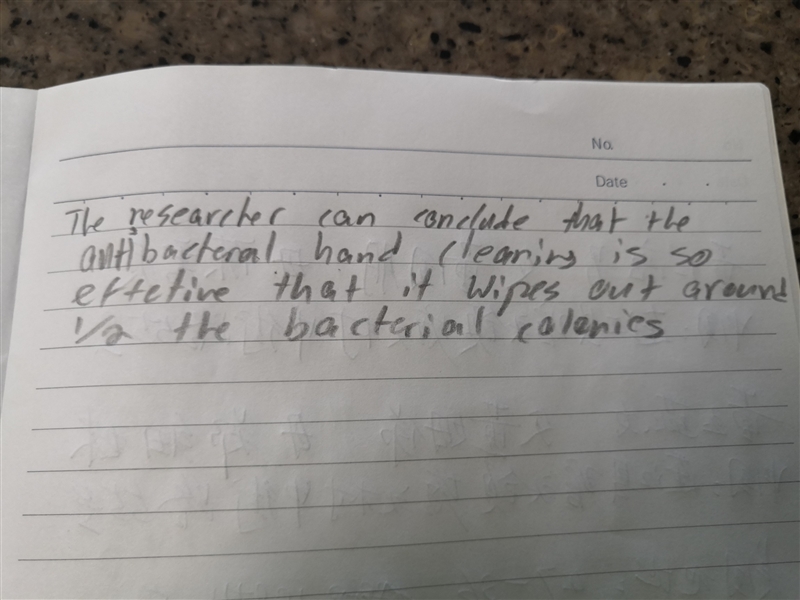 No.
Date
The researcher can conclude that the
antibacteral hand cleaning is so
effetive that it wipes out around
1/2 the bacterial colonies